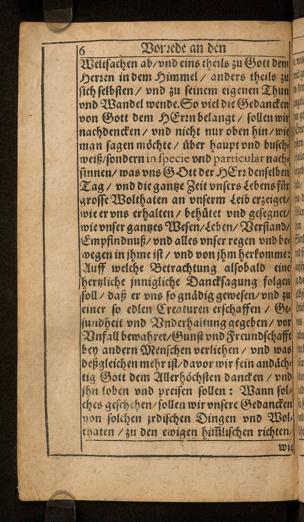 6 Vorrede an den
Weltsachen ab/ vnd eins theils zu Gott dem
Herren in dem Himmel/ anders theils zu
sich selbsten/ vnd zu seinem eigenen Thun
vnd Wandel wende. So viel die Gedancken
von Gott dem HErrn belangt/ sollen wir
nachdencken/ vnd nicht nur oben hin/ wie
man sagen möchte/ über haupt vnd busch-
weiß/ sondern in specie vnd particular nach-
sinnen/ was vns GOtt der HErr denselben
Tag/ vnd die gantze Zeit vnsers Lebens für
grosse Wolthaten an vnserm Leib erzeiget/
wie er vns erhalten/ behütet vnd gesegnet/
wie vnser gantzes Wesen/ Leben/ Verstand/
Empfindnuß/ vnd alles vnser regen vnd be-
wegen in jhme ist/ vnd von jhm herkomme:
Auff welche Betrachtung alsobald eine
hertzliche innigliche Dancksagung folgen
soll/ daß er vns so gnädig gewesen/ vnd zu
einer so edlen Creaturen erschaffen/ Ge-
sundheit vnd Vnderhaltung gegeben/ vor
Vnfall bewahret/ Gunst vnd Freundschafft
bey andern Menschen verliehen/ vnd was
deßgleichen mehr ist/ davor wir fein andäch-
tig Gott dem Allerhöchsten dancken/ vnd
jhn loben vnd preisen sollen: Wann sol-
ches geschehen/ sollen wir vnsere Gedancken
von solchen jrdischen Dingen vnd Wol-
thaten/ zu den ewigen him̃lischen richten/
wie